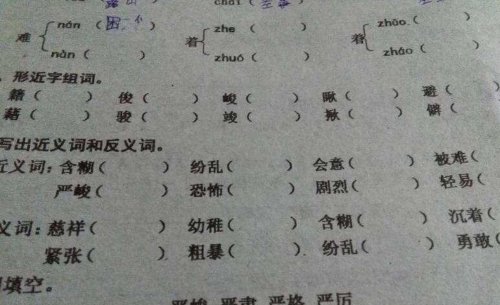 chāi
难 nán (困
nàn ( )
着 zhe ( )
zhuó ( )
着 zhāo. ( )
zháo ( )
形近字组词。
籍( ) 俊( ) 峻( ) 瞅( ) 避(
藉( ) 骏( ) 竣( ) 揪( ) 僻(
写出近义词和反义词。
近义词:含糊( ) 纷乱( ) 会意( ) 被难(
严峻( ) 恐怖( ) 剧烈( ) 轻易(
义词:慈祥( ) 幼稚( ) 含糊( ) 沉着(
紧张( ) 粗暴( ) 纷乱( ) 勇敢(
填空。
严峻 严肃 严格 严厉